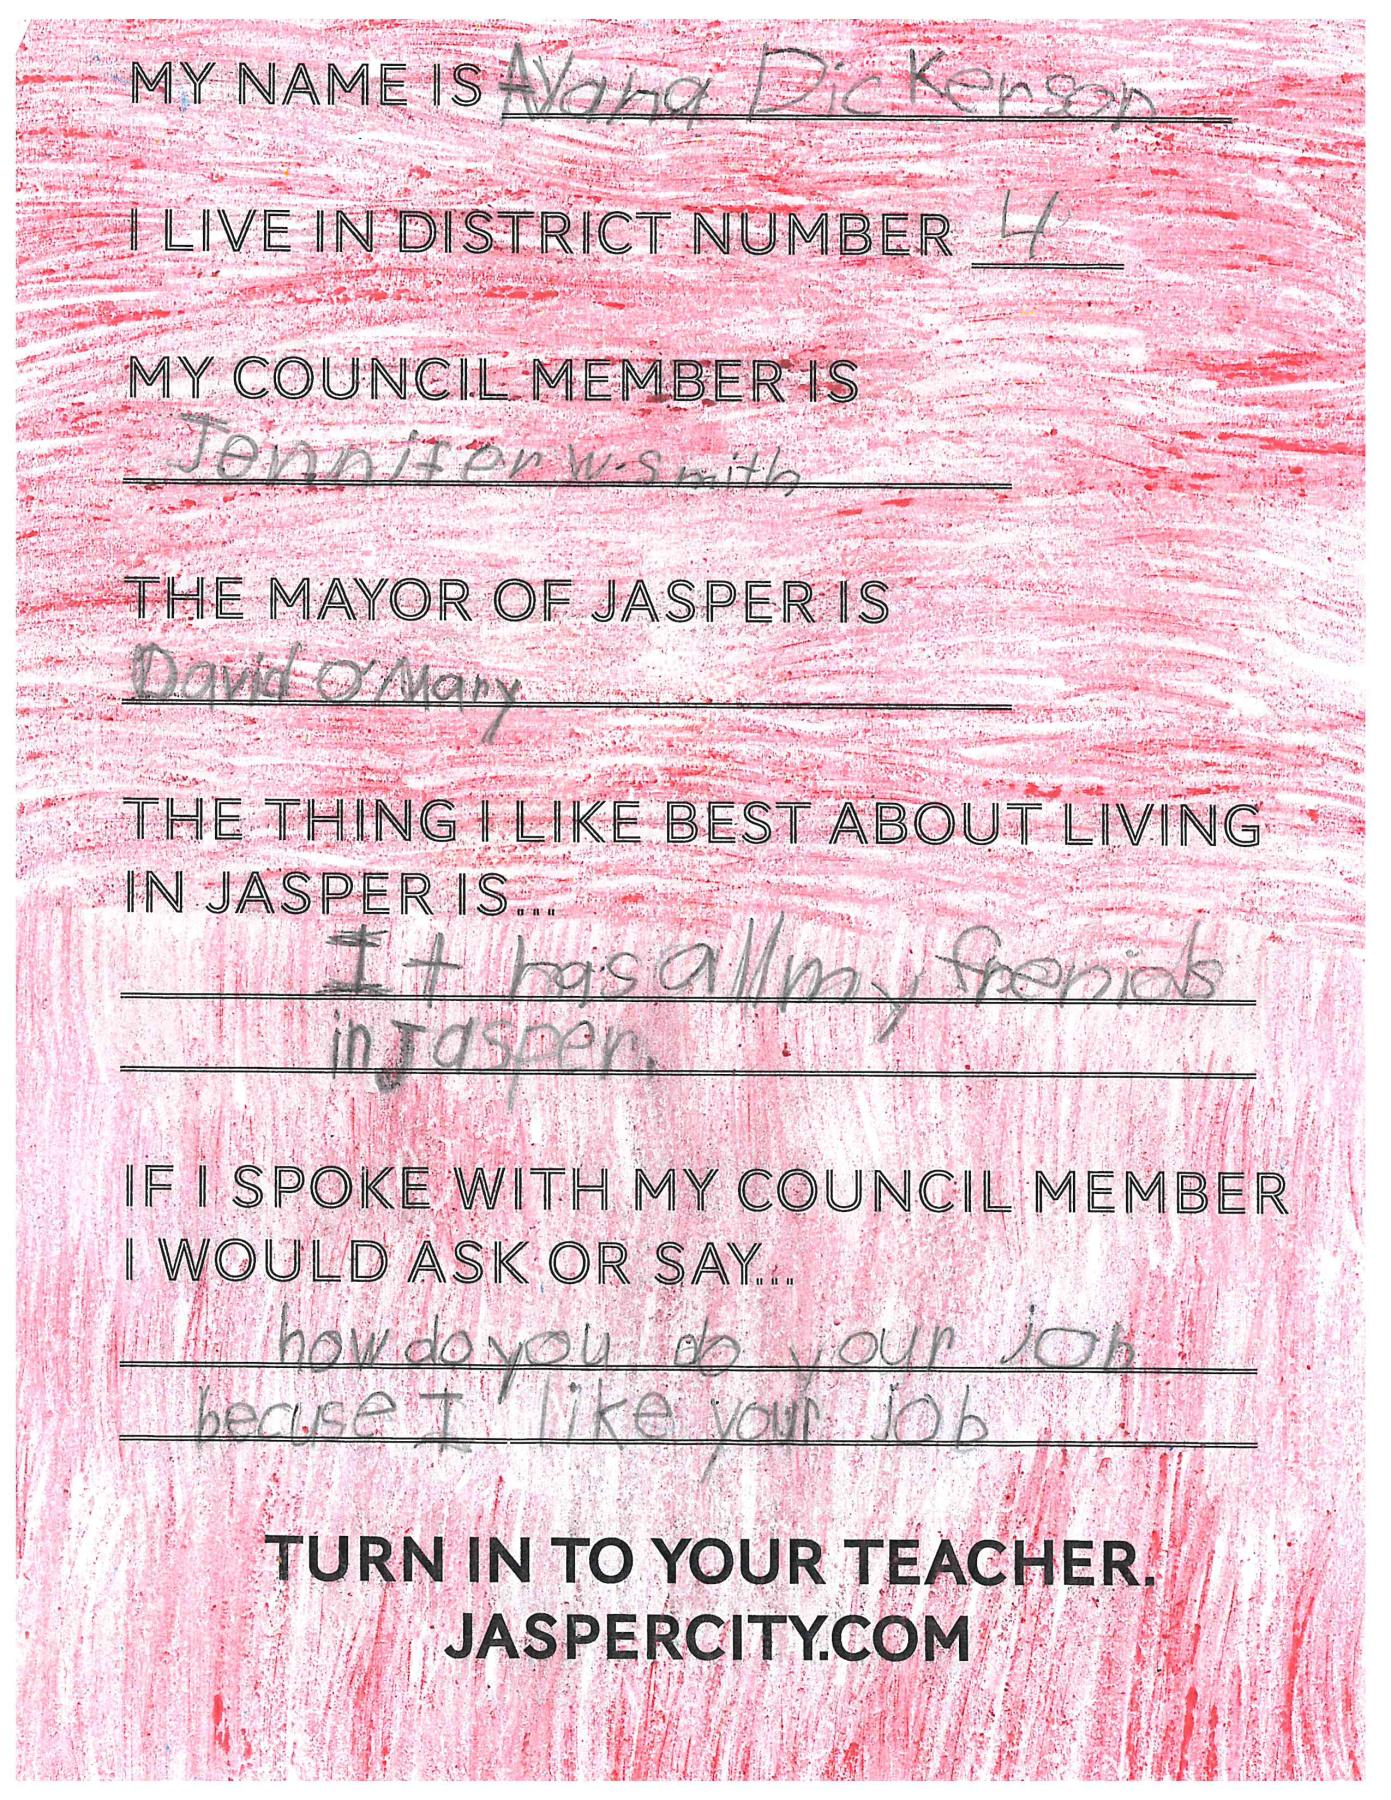 MY NAME IS Alana Dickenson
I LIVE IN DISTRICT NUMBER 4
MY COUNCIL MEMBER IS
Jennifer W. Smith
THE MAYOR OF JASPER IS
David O'Mary
THE THING I LIKE BEST ABOUT LIVING
IN JASPER IS...
It has all my frenids
in Jasper.
IF I SPOKE WITH MY COUNCIL MEMBER
I WOULD ASK OR SAY...
how do you do your joh
becuse I like your job
TURN IN TO YOUR TEACHER.
JASPERCITY.COM